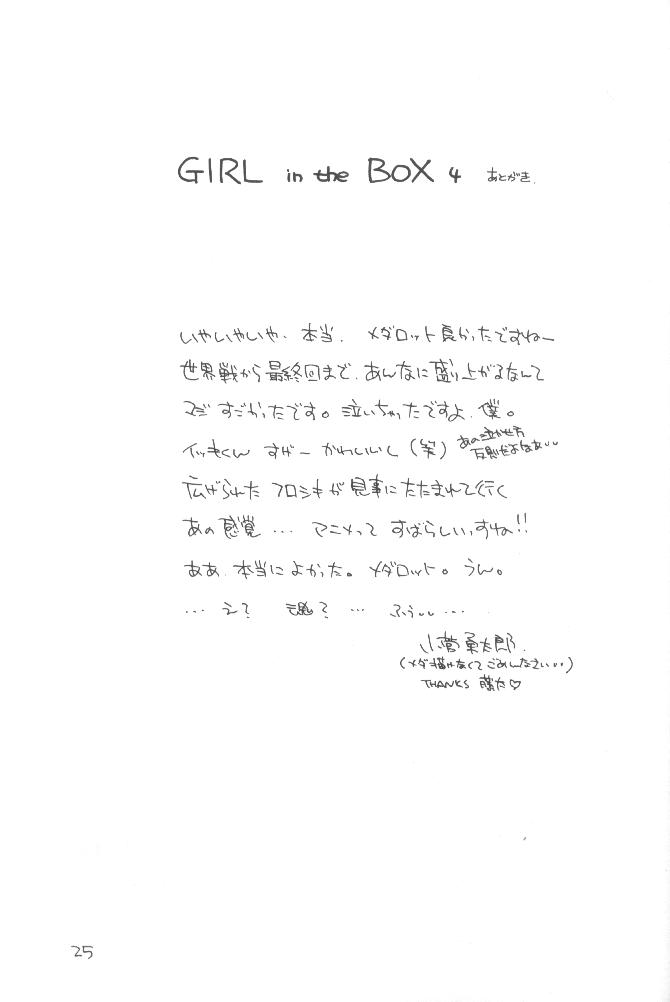 GIRL in the BOX 4 あとがき.
いやいやいや、本当、メダロット良かったですねー
世界戦から最終回まで、あんなに盛り上がるなんて
マジすごかったです。泣いちゃったですよ、僕。
イッキくん すげー かわいいし(笑) あの泣かせ方
反則だよなあ‥
広げられた フロシキが見事にたたまれて行く
あの感覚… アニメって すばらしいっすね!!
ああ、本当によかった。メダロット。うん。
… え? 魂? … ふぅ‥…
小菅勇太郎.
(メダ描けなくてごめんなさい‥)
THANKS 藤た♡
25